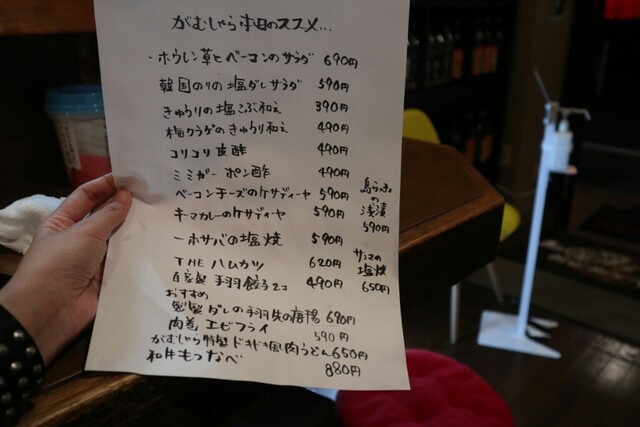 がむしゃら本日のススメ...
ホウレン草とベーコンのサラダ 690円
韓国のりの塩ダレサラダ 590円
きゅうりの塩こぶ和え 390円
梅クラゲのきゅうり和え 490円
コリコリ皮酢 490円
ミミガーポン酢 490円
ベーコンチーズのケサディーヤ 590円
キーマカレーのケサディーヤ 590円
一ホサバの塩焼 590円
THE ハムカツ 620円
自家製 手羽餃子2コ 490円
おすすめ
ダレの手羽先の唐揚 690円
肉巻エビフライ 590円
がむしゃら特製 肉うどん 650円
和牛もつなべ 880円
島らっきょの浅漬 590円
サンマの塩焼 650円